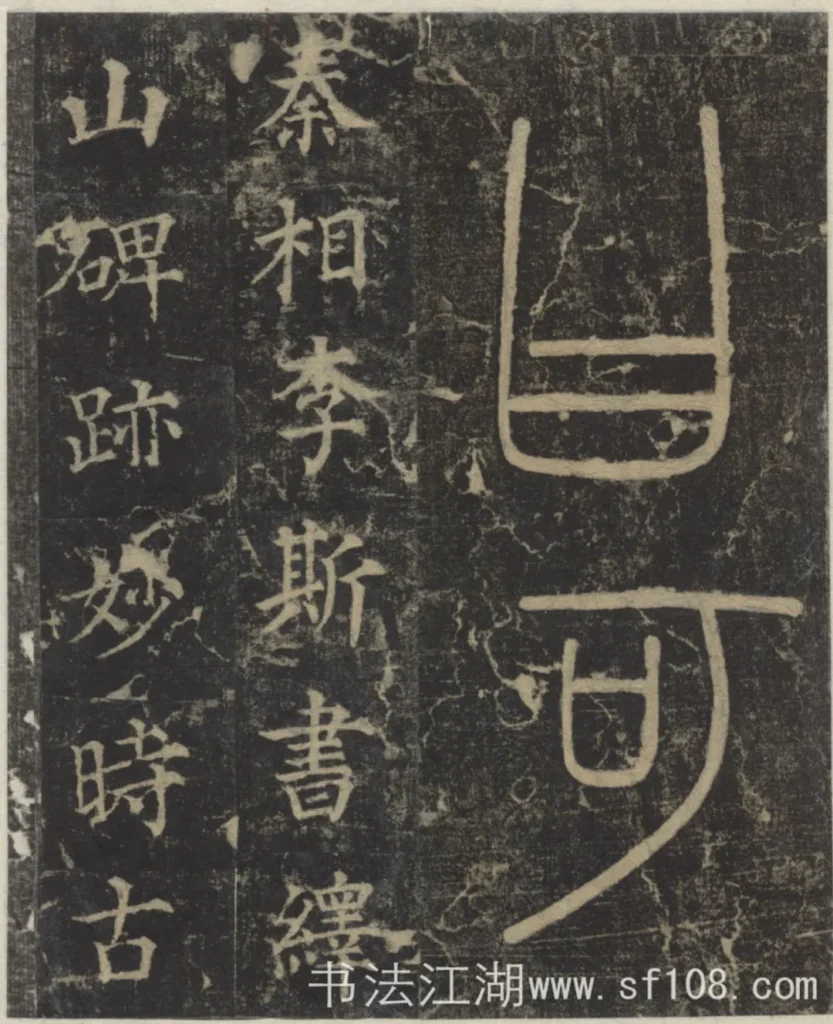 曰可
秦相李斯書繹
山碑跡妙時古
书法江湖www.sf108.com